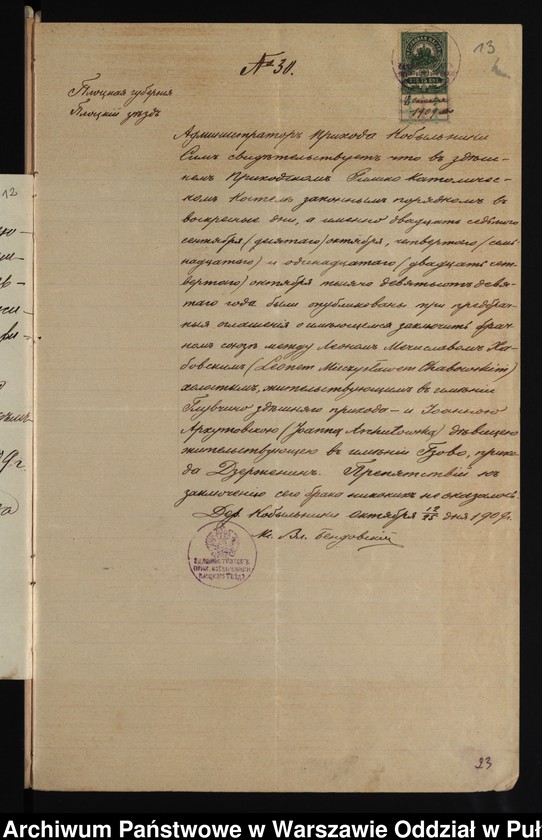 13
№ 30.
Плоцкая губернія
Плоцкій уѣздъ
12
1909
Администраторъ Прихода Кобыльники
Симъ свидѣтельствуетъ что въ здѣш-
немъ Приходскомъ Римско Католичес-
комъ Костелѣ законнымъ порядкомъ въ
воскресные дни, а именно двадцать седьмого
сентября /десятаго/ октября, четвертаго /сем-
надцатого/ и одинадцатаго /двадцать чет-
вертаго/ октября тысяча девятьсотъ девя-
таго года были опубликованы три предбрач-
ныя оглашенія о имѣющемся заключить брач-
номъ союзѣ между Леономъ Мечиславомъ Ха-
бовскимъ (Leonem Mieczysławem Chabowskim)
холостымъ, жительствующимъ въ имѣніи
Глувчино здѣшняго прихода – и Іоанною
Архутовскою (Joanna Archutowska) дѣвицею
жительствующею въ имѣніи Гзово, прихо-
да Дзерженинъ. Препятствій къ
заключенію сего брака никакихъ не оказалось.
Дер. Кобыльники Октября 12/25 дня 1909 г.
Кс. Вл.
23
Archiwum Państwowe w Warszawie Oddział w Puł